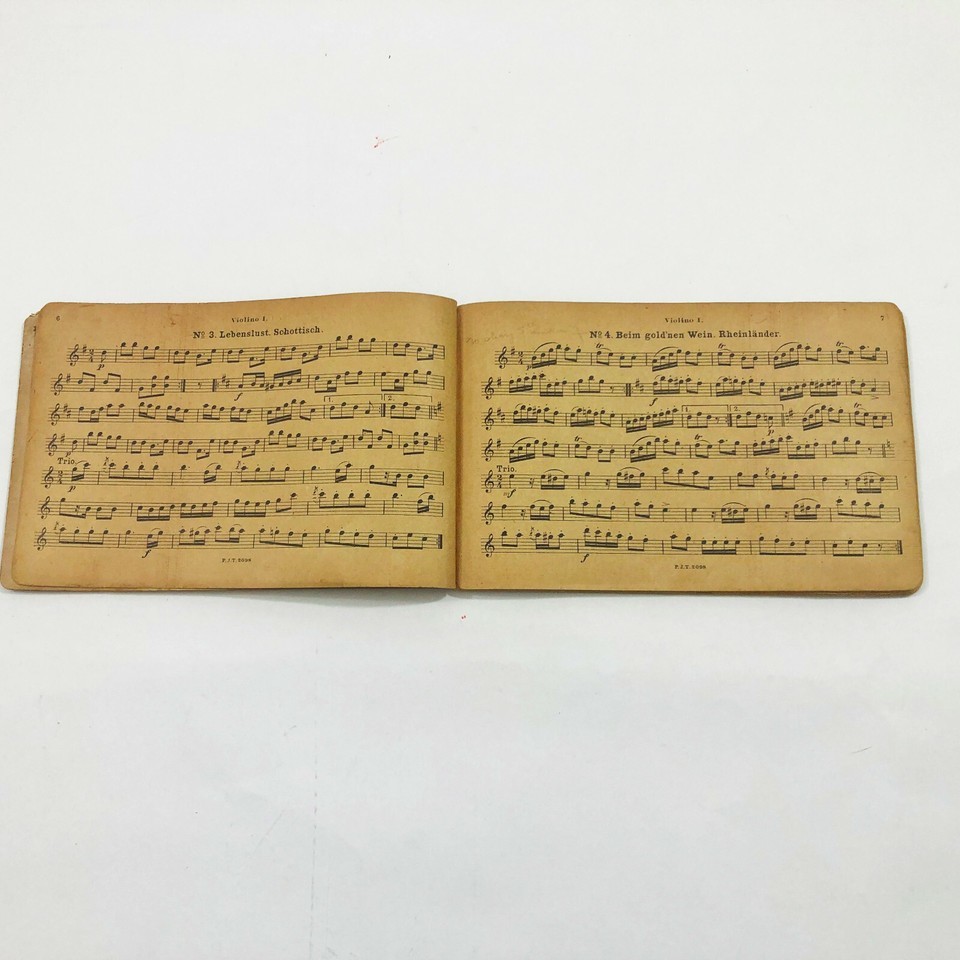 6
Violino I.
Nº 3. Lebenslust. Schottisch.
p
f
1.
2.
p
Trio.
p
f
P.J.T. 2098
Violino I.
7
Nº 4. Beim gold'nen Wein. Rheinländer.
p
tr
tr
tr
f
1.
2.
p
tr
tr
Trio.
mf
f
P.J.T. 2098